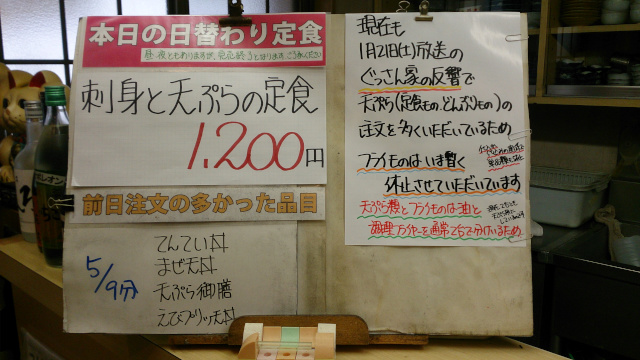 本日の日替わり定食
刺身と天ぷらの定食
1,200円
前日注文の多かった品目
5/9分
てんてい丼
まぜ天丼
天ぷら御膳
えびプリッ天丼
現在も
1月21日(土)放送の
ぐっさん家の反響で
天ぷら(定食もの、どんぶりもの)の
注文を多くいただいているため
フライものはいま暫く
休止させていただいています
天ぷら機とフライものは油と
調理フライヤーを通常でも分けているため